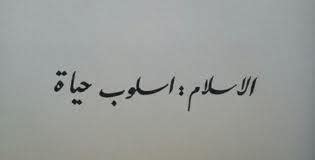 الاسلام : اسلوب حياة